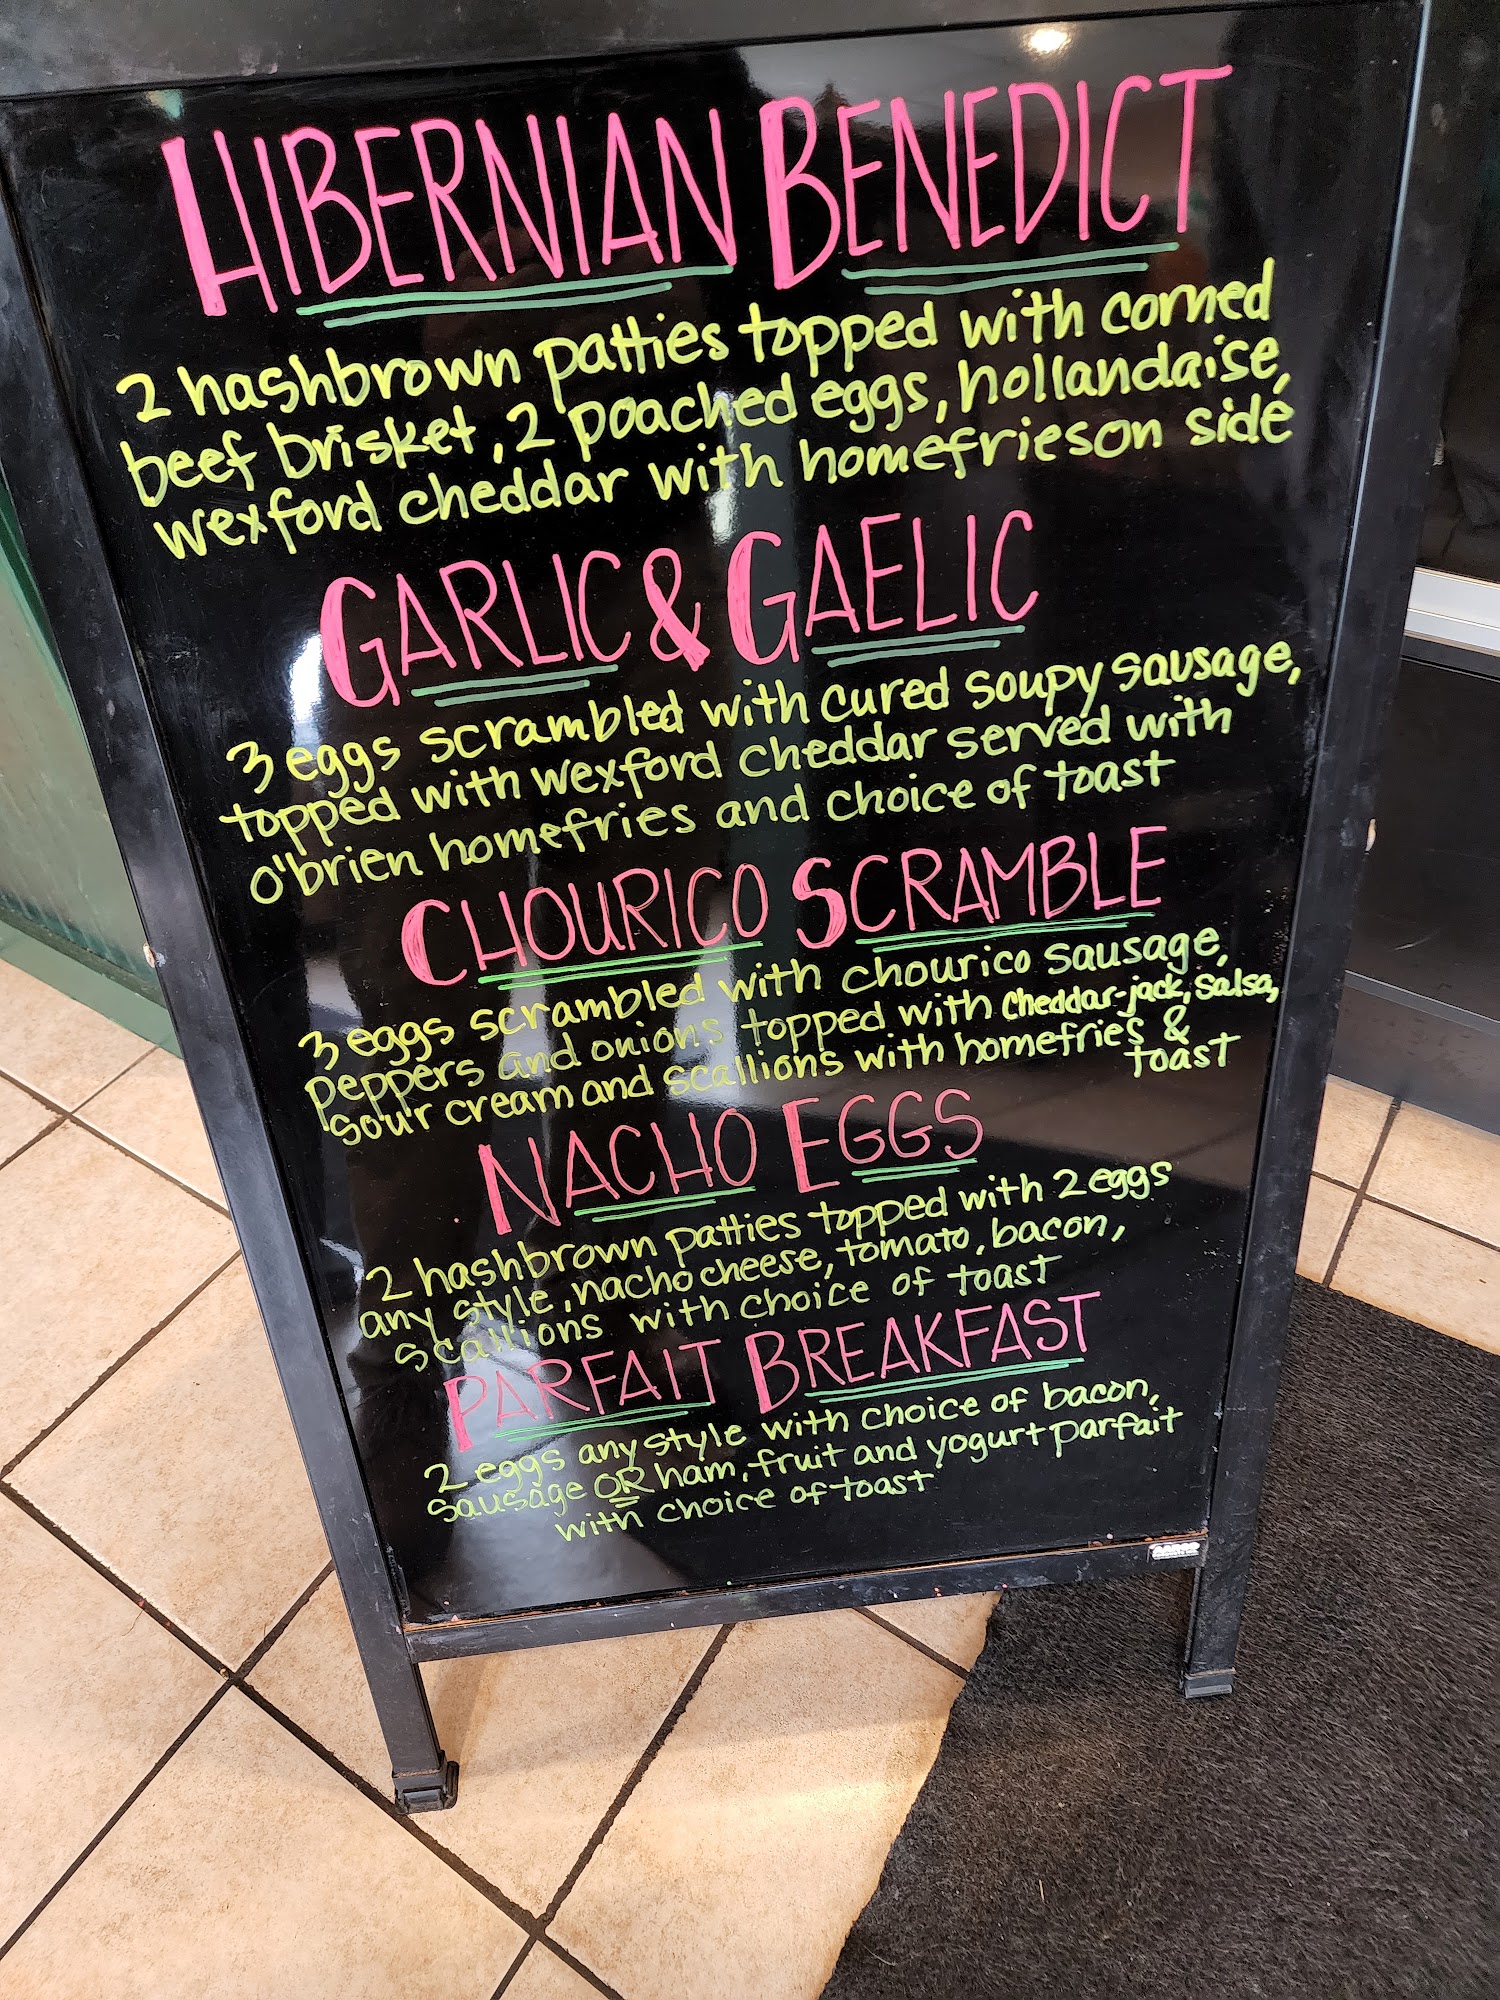 HIBERNIAN BENEDICT
2 hashbrown patties topped with corned
beef brisket, 2 poached eggs, hollandaise,
wexford cheddar with homefrieson side
GARLIC & GAELIC
3 eggs scrambled with cured soupy sausage,
topped with wexford cheddar served with
o'brien homefries and choice of toast
CHOURICO SCRAMBLE
3 eggs scrambled with chourico sausage,
peppers and onions topped with cheddar-jack, salsa,
sour cream and scallions with homefries &
toast
NACHO EGGS
2 hashbrown patties topped with 2 eggs
any style, nacho cheese, tomato, bacon,
scallions with choice of toast
PARFAIT BREAKFAST
2 eggs any style with choice of bacon,
sausage OR ham, fruit and yogurt parfait
with choice of toast